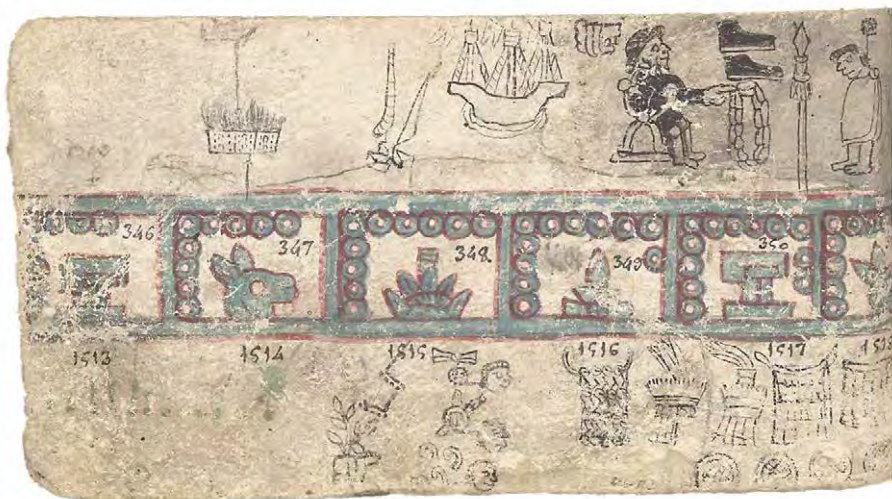 346 347 348 349 350
1513 1514 1515 1516 1517 1518